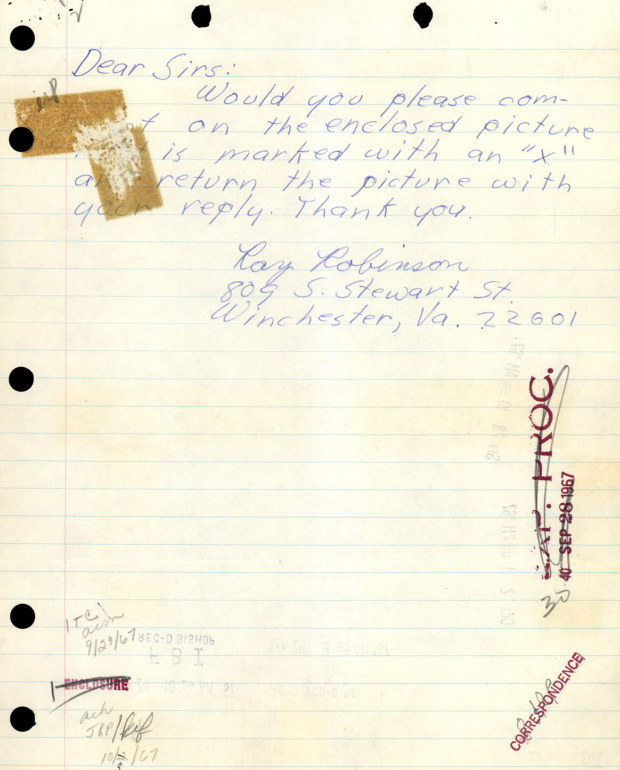 Dear Sirs:
Would you please com-
t on the enclosed picture
is marked with an "x"
a return the picture with
your reply. Thank you.
Ray Robinson
809 S. Stewart St.
Winchester, Va. 22601
PROC.
40 SEP 28 1967
30
ITC
9/29/67
REC-D BISHOP
F B I
1 ENCLOSURE
ach
JRP/
10/2/67
CORRESPONDENCE